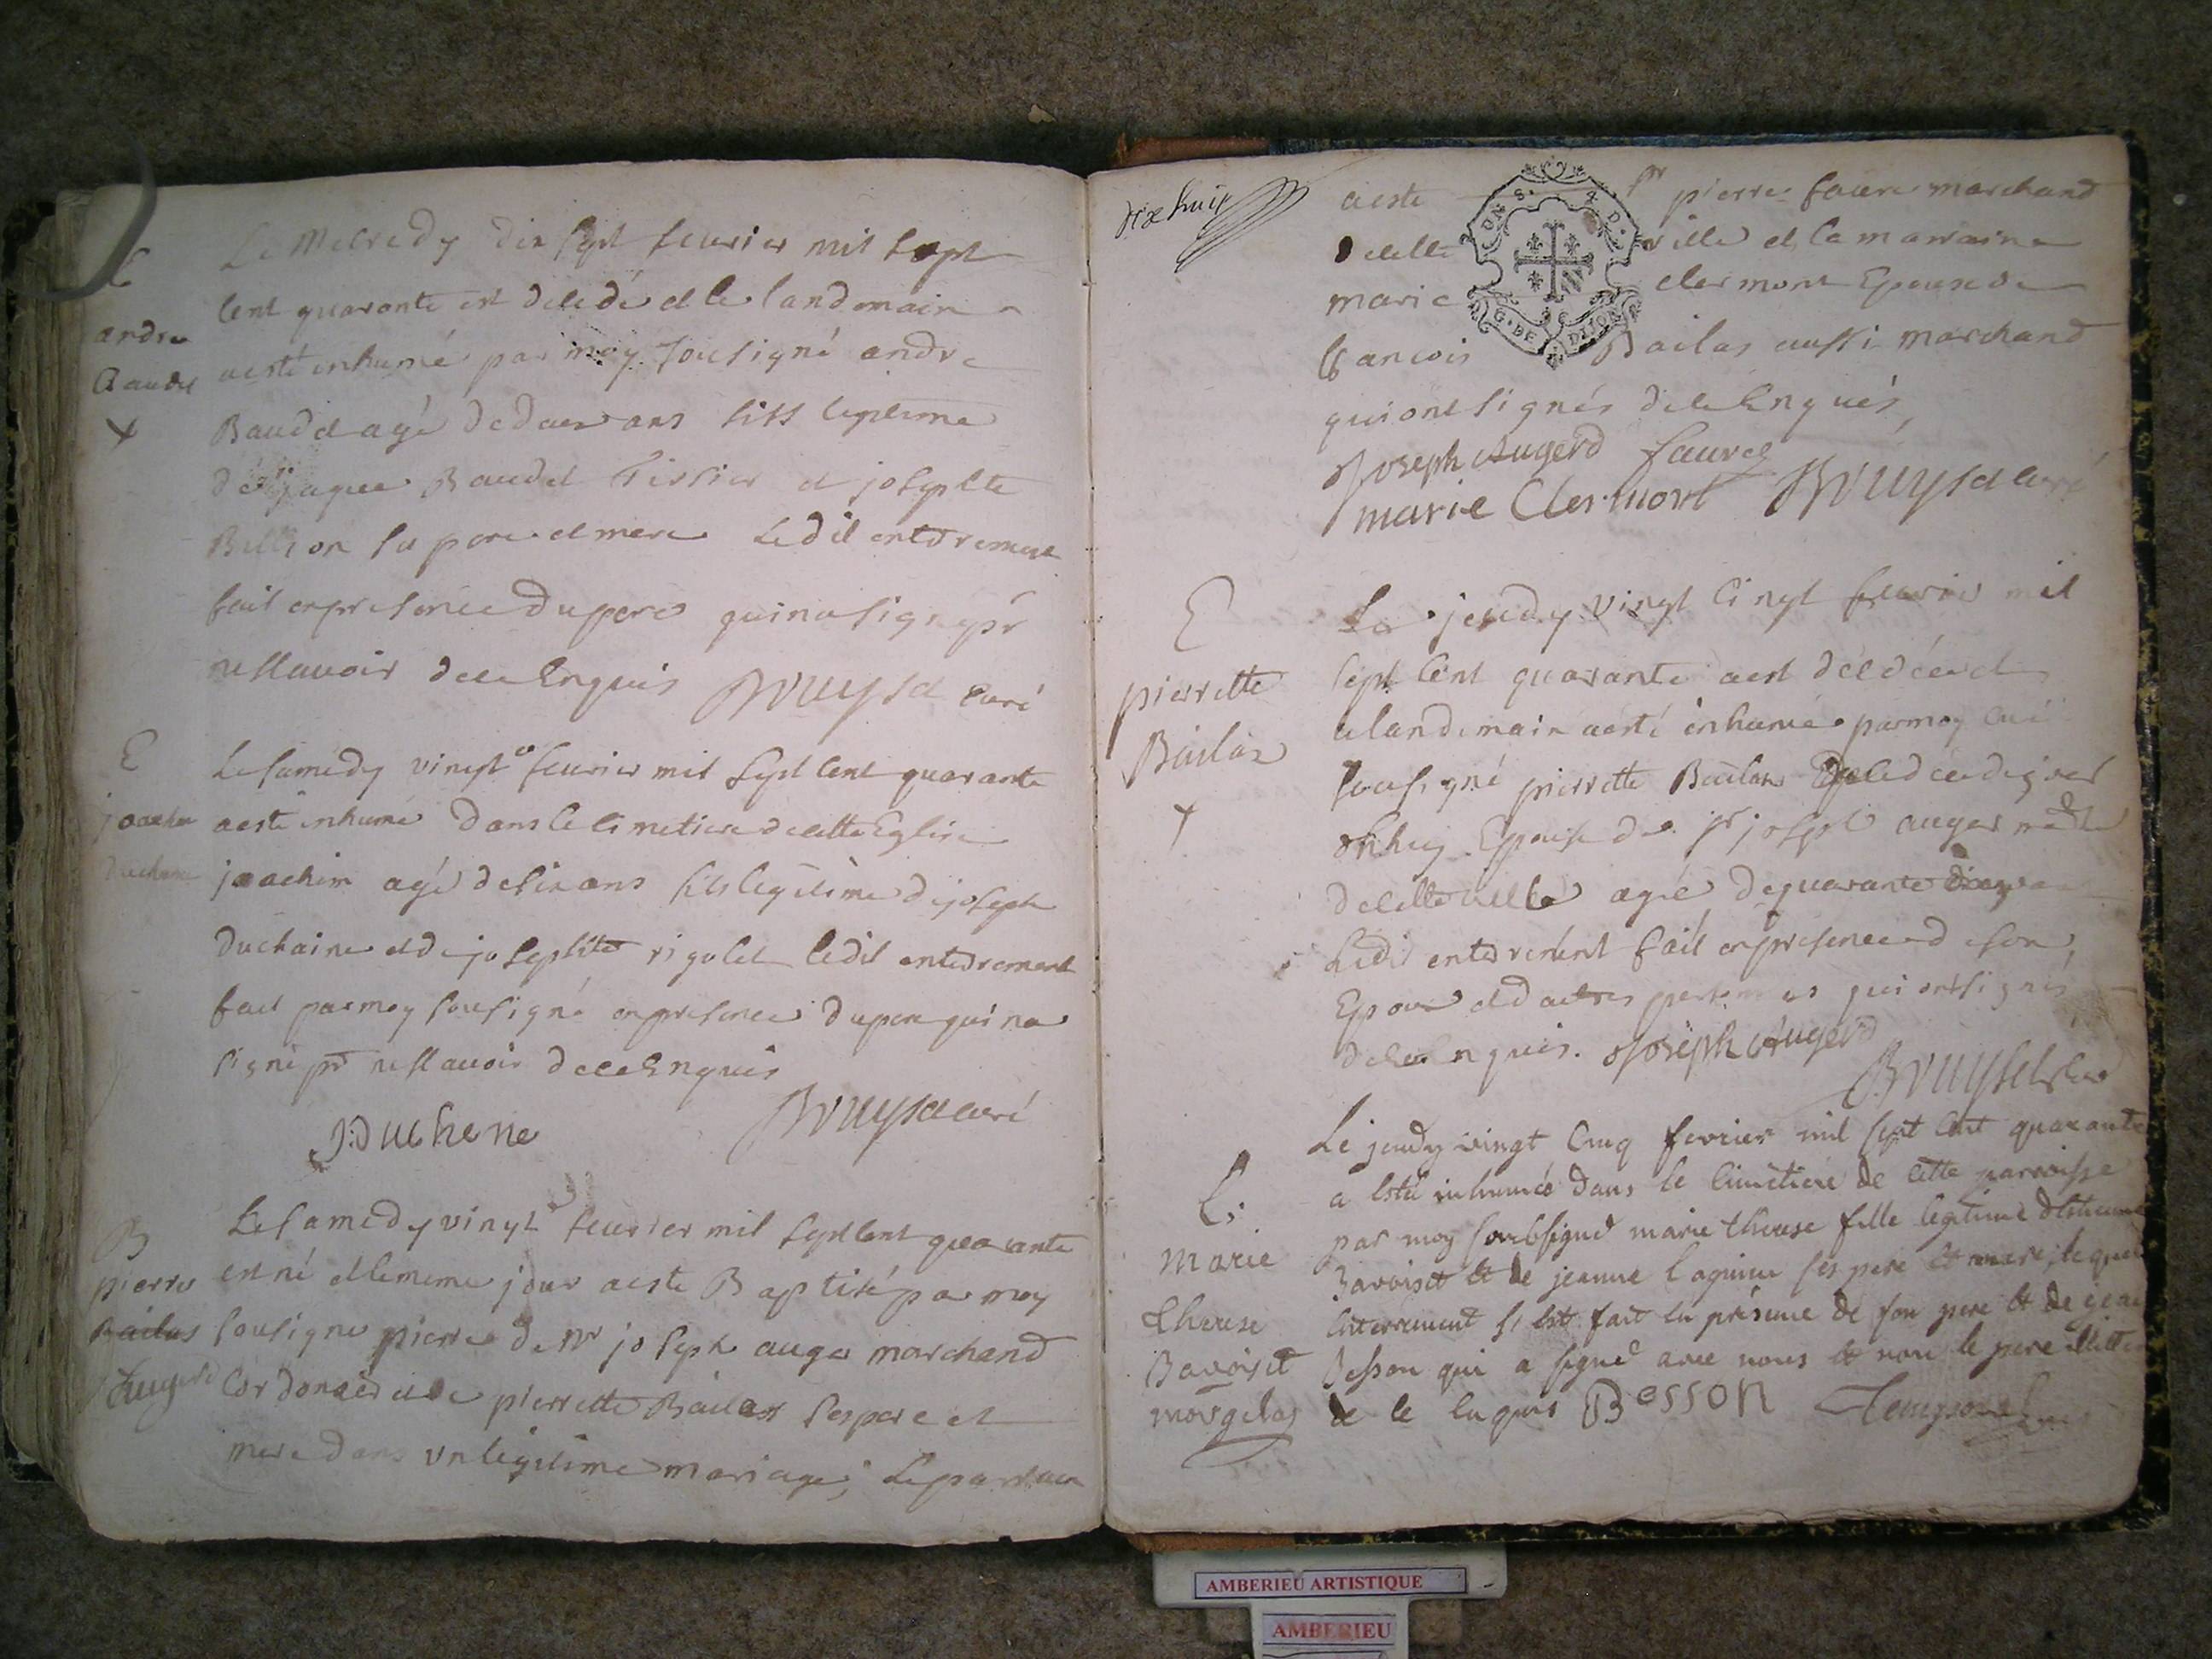 E
andre
Baudet
Le Mecredy dix sept feurier mil sept
cent quarante est decedé et le landemain
aesté inhumé par moy sousigné andre
Baudet agé de deux ans fils legitime
de jaque Baudet tissier et josephte
Billion sa pere et mere Ledit enterrement
fait en presence du pere qui na signé pr
ne scavoir de ce enquis Bruyset curé
E
joachin
duchene
Le samedy vingt feurier mil sept cent quarante
aesté inhumé dans le cimetiere de cette Eglise
joachim agé de six ans fils legitime de joseph
duchaine et de josephte rigolet ledit enterrement
fait par moy sousigné en presence du pere qui na
signé pr ne scavoir de ce enquis
J: Duchene Bruyset curé
B
pierre
Bailas
Augerd
Le samedy vingt feurier mil sept cent quarante
est né et le meme jour aeste Baptisé par moy
sousigne pierre de Mr joseph auger marchand
et de pierrette Bailas ses pere et
mere dans vn legitime mariage, Le parrain
dix huit
aeste sr pierre faure marchand
de cette ville et la marraine
marie clermont Epouse de
francois Bailas aussi marchand
qui ont signés de ce Enqués
Joseph Augerd faure
marie Clermont Bruyset curé
DIJON
E
pierrette
Bailas
Le jeudy vingt cinq feurier mil
sept cent quarante aest décédée et
le landemain aesté inhumé par moy curé
sousigné pierrette Bailas decedée
Epouse de sr joseph auger
de cette ville agée de quarante
Ledit enterrement fait en presence de son
Epoux et dautres personnes qui ont signés
de ce enquis. Joseph Augerd
Bruyset
E:
Marie
therese
Bavoiset
morgelas
Le jeudy vingt cinq fevrier mil sept cent quarante
a esté inhumée dans le cimetiere de cette parroisse
par moy soubsigné marie therese fille legitime d'estienne
Bavoiset et de jeanne ses pere et mere, lequel
enterrement s'est fait en présence de son pere et de
Besson qui a signé avec nous et non le pere
de ce enquis Besson
AMBERIEU ARTISTIQUE
AMBERIEU